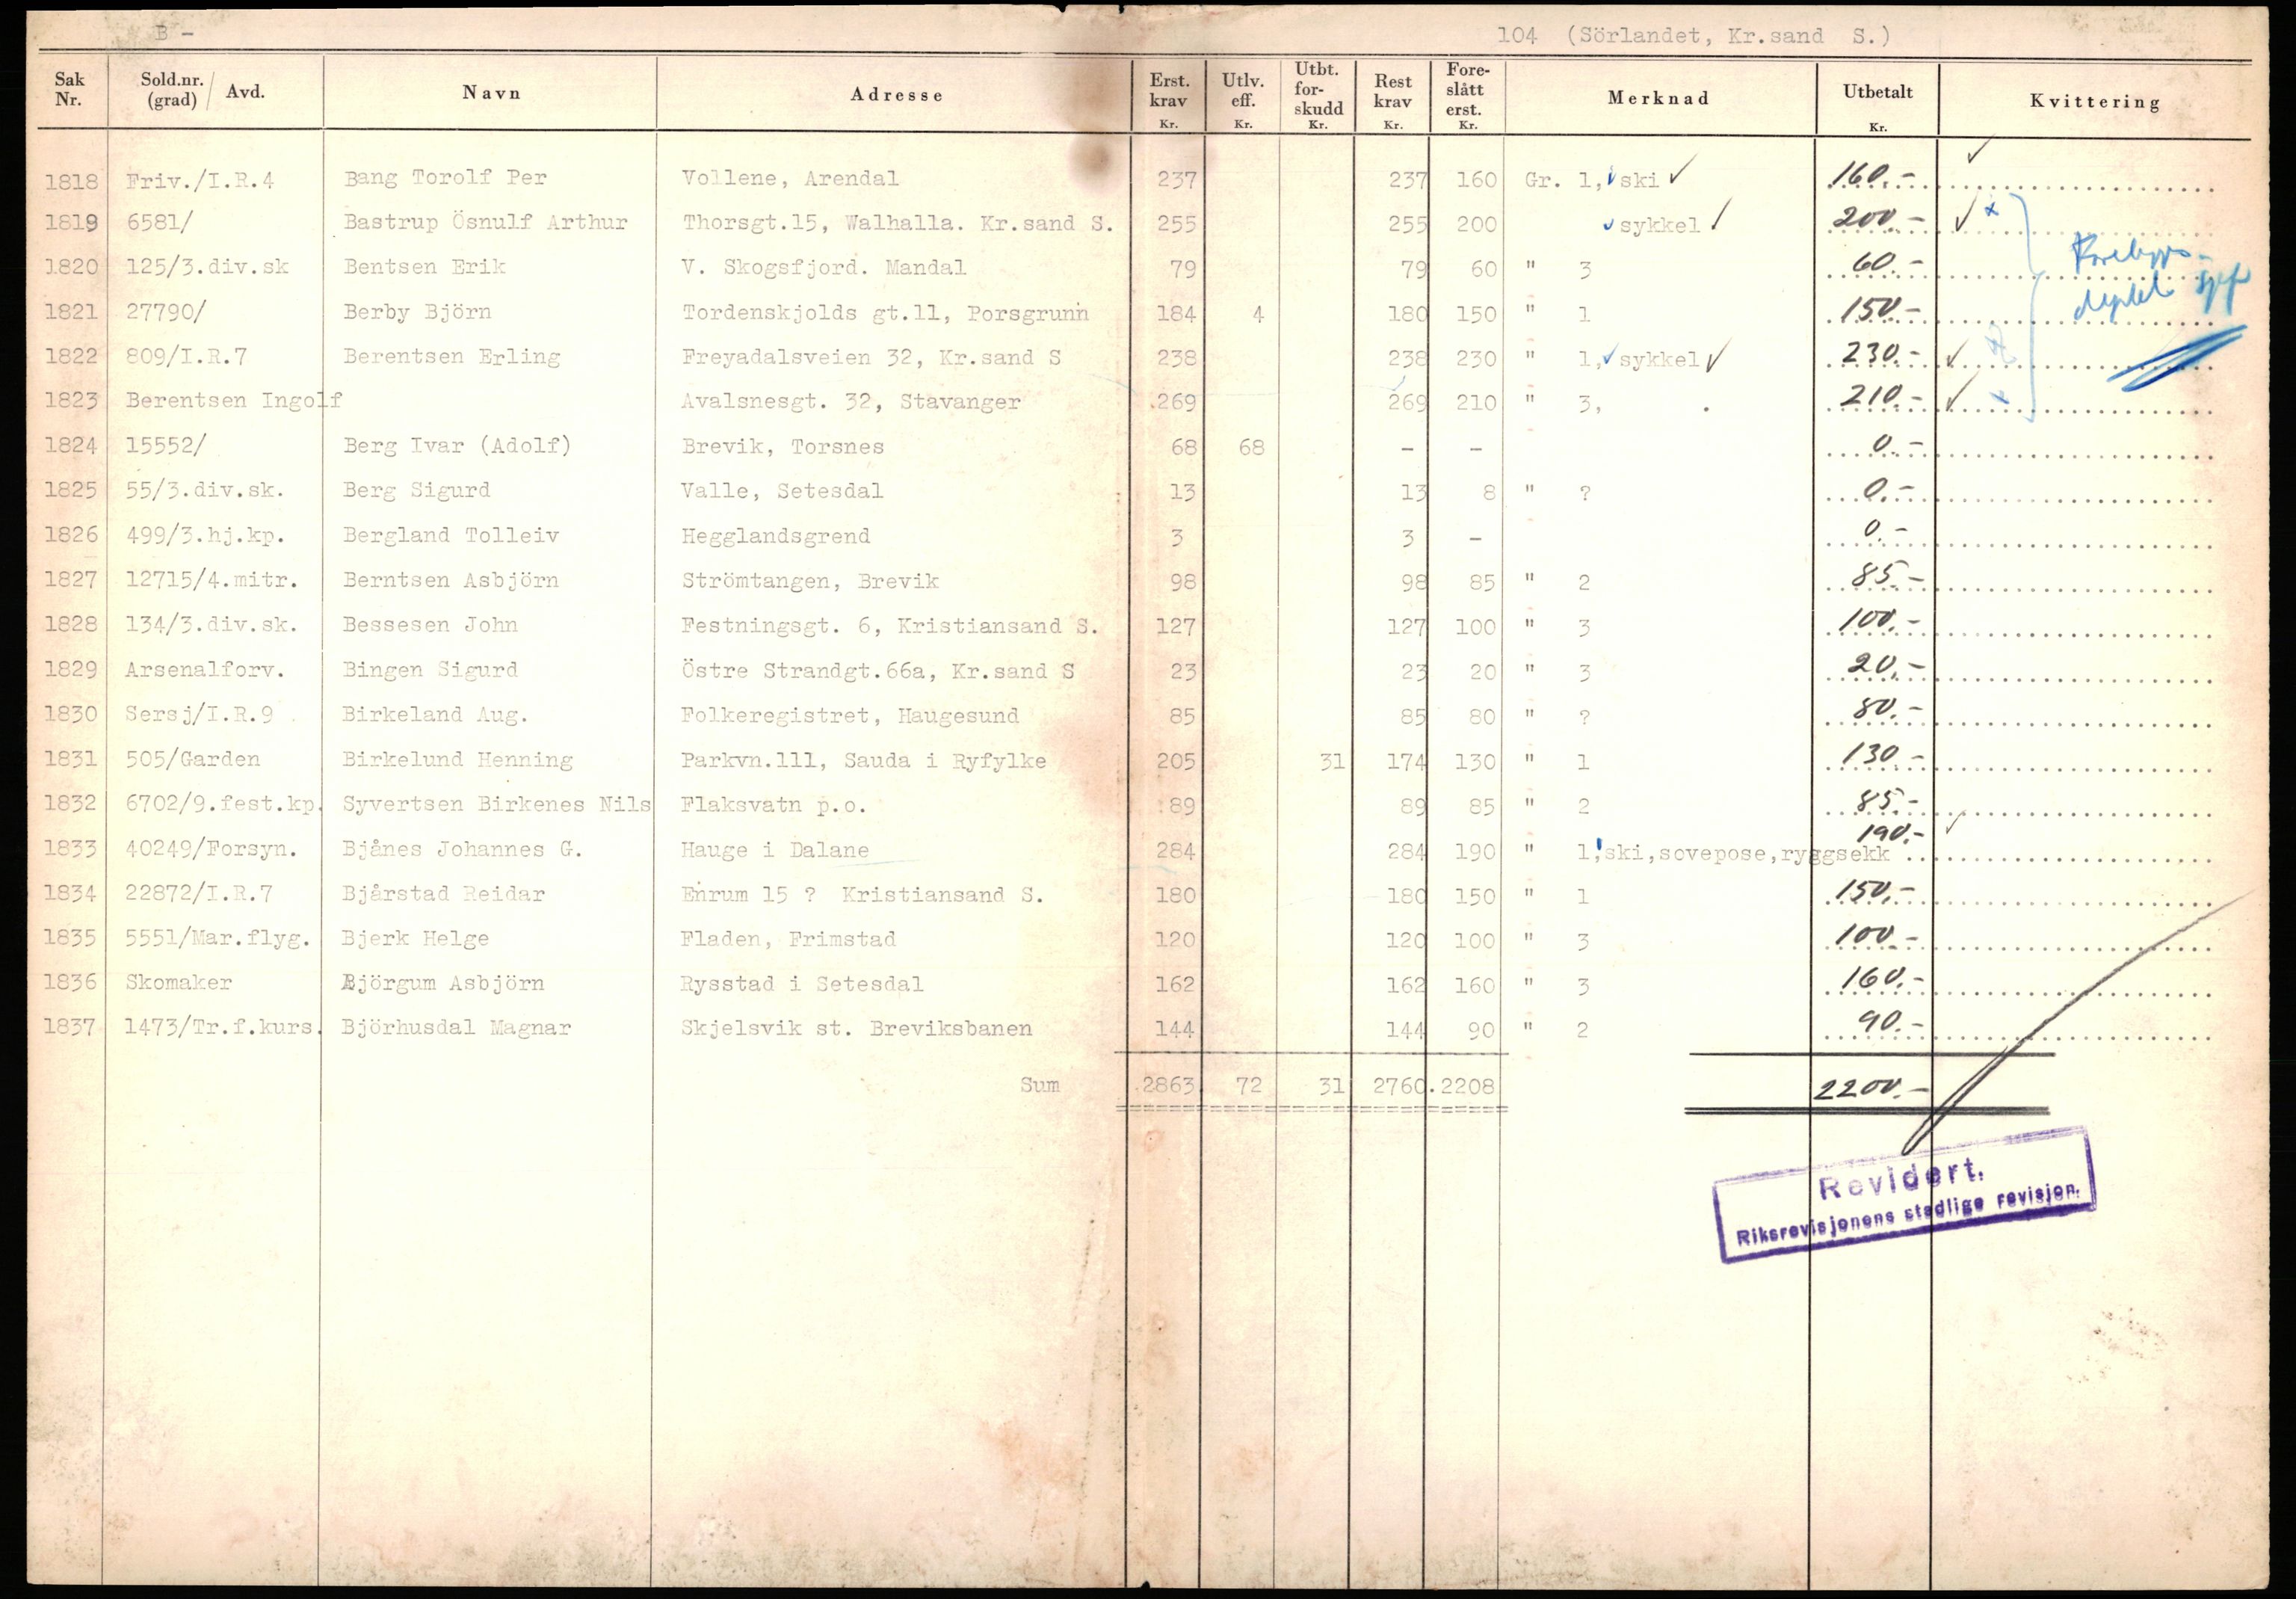 B - 104 (Sörlandet, Kr.sand S.)
Sak Nr. Sold.nr. (grad) / Avd. Navn Adresse Erst. krav Kr. Utlv. eff. Kr. Utbt. for- skudd Kr. Rest krav Kr. Fore- slått erst. Kr. Merknad Utbetalt Kr. Kvittering
1818 Friv./I.R.4 Bang Torolf Per Vollene, Arendal 237 237 160 Gr. 1, ✓ ski ✓ 160.- ✓
1819 6581/ Bastrup Ösnulf Arthur Thorsgt.15, Walhalla. Kr.sand S. 255 255 200 ✓ sykkel ✓ 200.- ✓ x
1820 125/3.div.sk Bentsen Erik V. Skogsfjord. Mandal 79 79 60 " 3 60.-
1821 27790/ Berby Björn Tordenskjolds gt.11, Porsgrunn 184 4 180 150 " 1 150.-
1822 809/I.R.7 Berentsen Erling Freyadalsveien 32, Kr.sand S 238 238 230 " 1, ✓ sykkel ✓ 230.- ✓
1823 Berentsen Ingolf Avalsnesgt. 32, Stavanger 269 269 210 " 3, . 210.- ✓ x
1824 15552/ Berg Ivar (Adolf) Brevik, Torsnes 68 68 - - 0.-
1825 55/3.div.sk. Berg Sigurd Valle, Setesdal 13 13 8 " ? 0.-
1826 499/3.hj.kp. Bergland Tolleiv Hegglandsgrend 3 3 - 0.-
1827 12715/4.mitr. Berntsen Asbjörn Strömtangen, Brevik 98 98 85 " 2 85.-
1828 134/3.div.sk. Bessesen John Festningsgt. 6, Kristiansand S. 127 127 100 " 3 100.-
1829 Arsenalforv. Bingen Sigurd Östre Strandgt.66a, Kr.sand S 23 23 20 " 3 20.-
1830 Sersj/I.R.9 Birkeland Aug. Folkeregistret, Haugesund 85 85 80 " ? 80.-
1831 505/Garden Birkelund Henning Parkvn.111, Sauda i Ryfylke 205 31 174 130 " 1 130.-
1832 6702/9.fest.kp. Syvertsen Birkenes Nils Flaksvatn p.o. 89 89 85 " 2 85.-
1833 40249/Forsyn. Bjånes Johannes G. Hauge i Dalane 284 284 190 " 1, ski,sovepose,ryggsekk 190.- ✓
1834 22872/I.R.7 Bjårstad Reidar Enrum 15 ? Kristiansand S. 180 180 150 " 1 150.-
1835 5551/Mar.flyg. Bjerk Helge Fladen, Frimstad 120 120 100 " 3 100.-
1836 Skomaker Björgum Asbjörn Rysstad i Setesdal 162 162 160 " 3 160.-
1837 1473/Tr.f.kurs. Björhusdal Magnar Skjelsvik st. Breviksbanen 144 144 90 " 2 90.-
Sum 2863 72 31 2760 2208 2200.-
Revidert.
Riksrevisjonens stedlige revisjon.